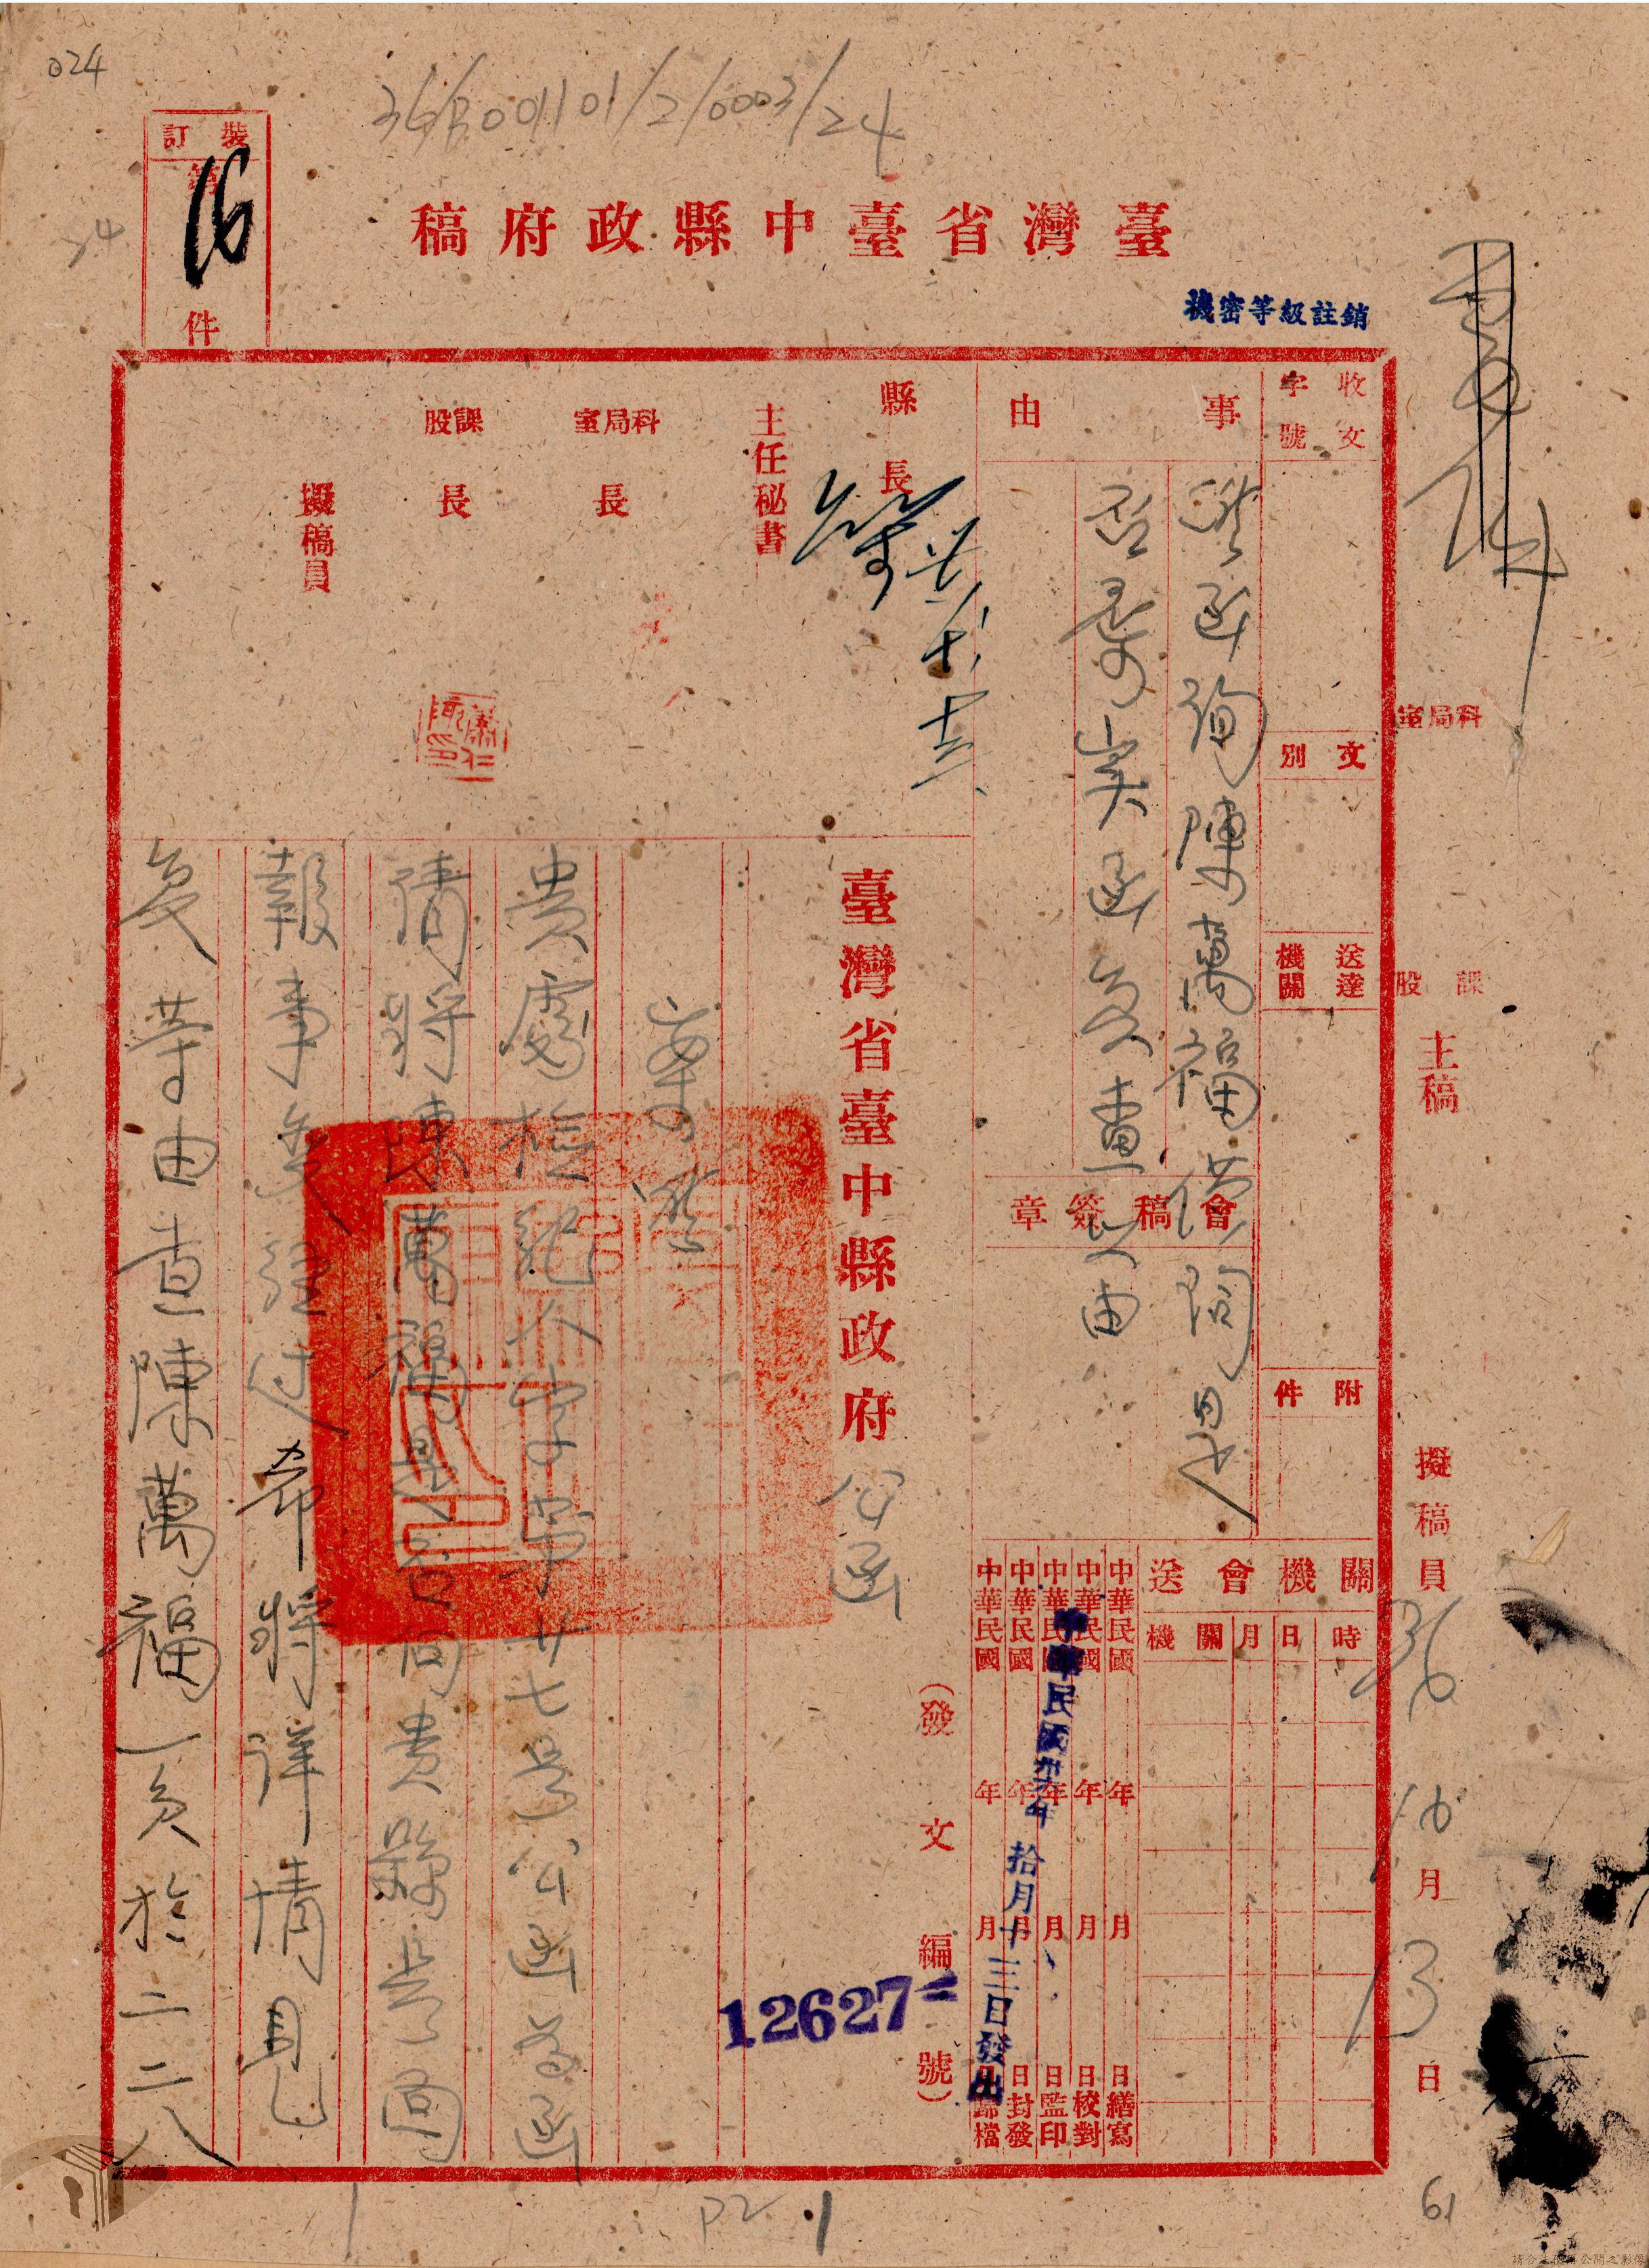 024
36/B001101/2/0003/24
裝訂
第
16
件
臺灣省臺中縣政府稿
機密等級註銷
收文
字號
文別
送達機關
附件
事由
准函詢陳萬福
否屬實函復查照由
會稿簽章
縣長
主任秘書
科局室長
課股長
擬稿員
科局室
課股
主稿
擬稿員
36
10月
13日
關機會送
時日月關機
中華民國 年 月 日繕寫
中華民國 年 月 日校對
中華民國 年 月 日監印
中華民國 年 月 日封發
中華民國 年 月 日歸檔
中華民國卅六年拾月十三日發出
(發文編號)
12627
臺灣省臺中縣政府公函
案准
貴處檢紀人字第廿七號公函為函
請將陳萬福是否向貴縣長回
報事實經過希將詳情見
復等由查陳萬福一員於二二八
P2
61